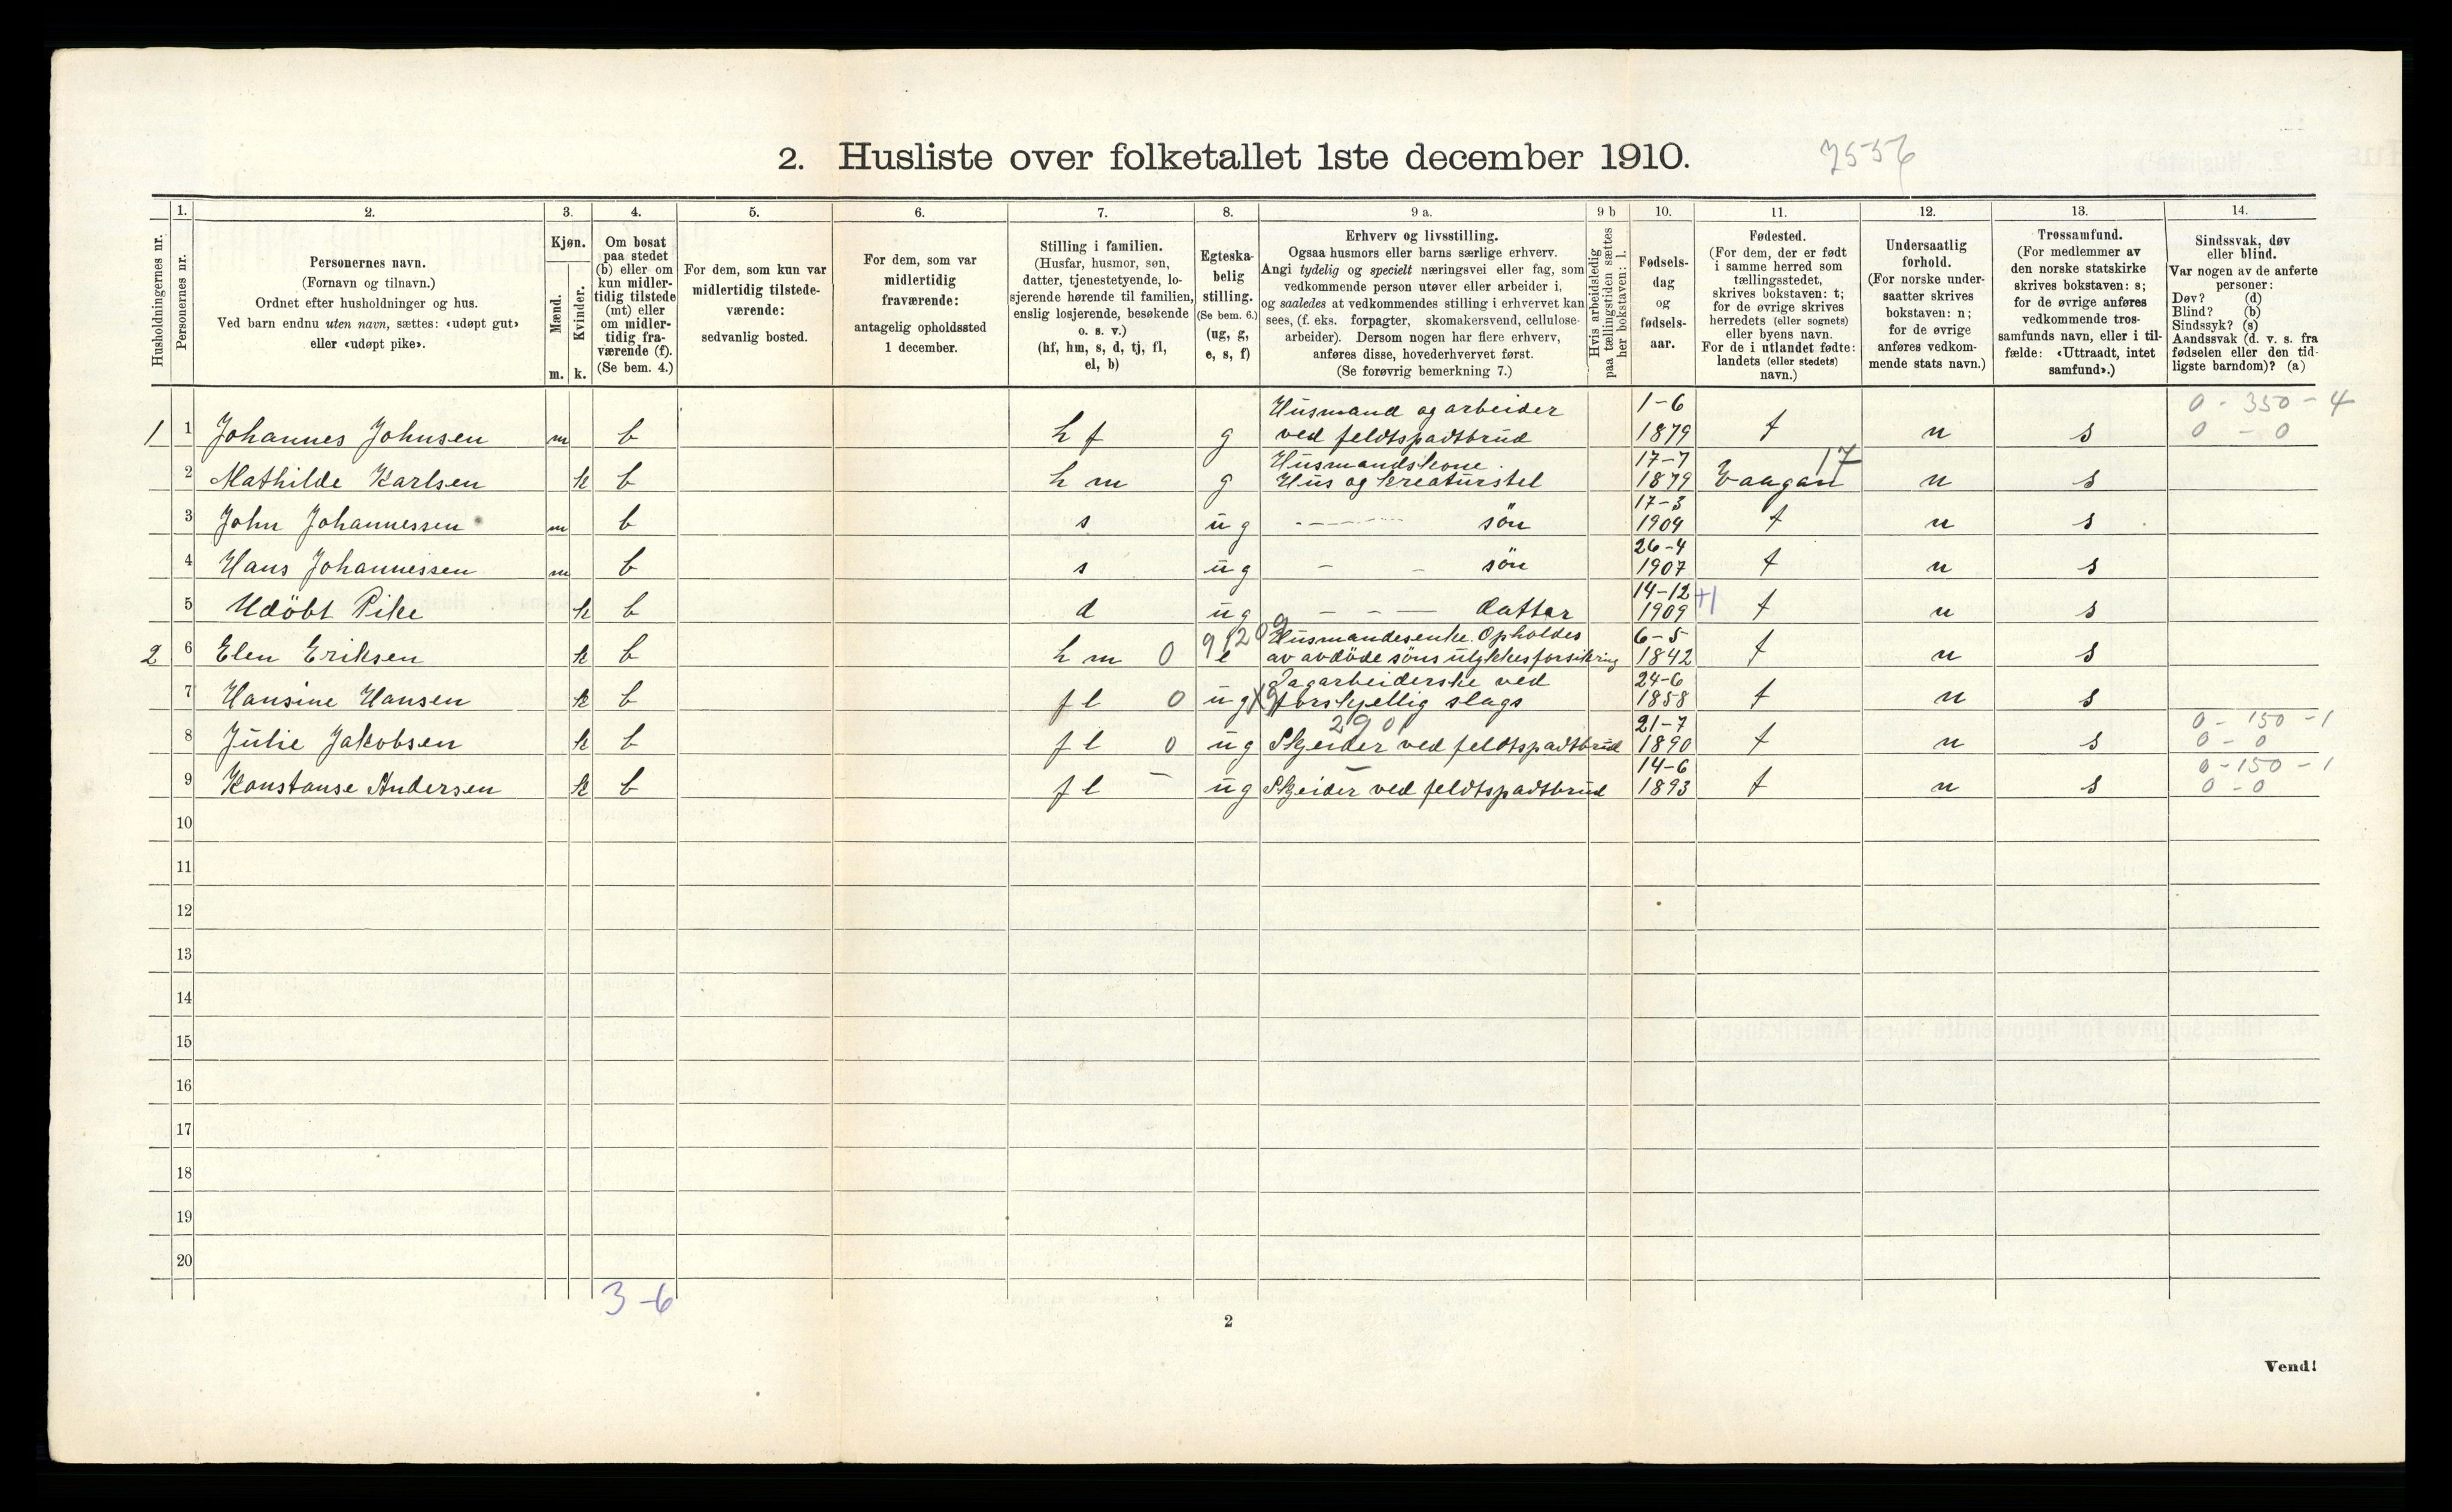 2. Husliste over folketallet 1ste december 1910.
1. 2. 3. 4. 5. 6. 7. 8. 9 a. 9 b 10. 11. 12. 13. 14.
Husholdningernes nr.
Personernes nr.
Personernes navn.
(Fornavn og tilnavn.)
Ordnet efter husholdninger og hus.
Ved barn endnu uten navn, sættes: «udøpt gut»
eller «udøpt pike».
Kjøn.
Mænd.
Kvinder.
m. k.
Om bosat
paa stedet
(b) eller om
kun midler-
tidig tilstede
(mt) eller
om midler-
tidig fra-
værende (f).
(Se bem. 4.)
For dem, som kun var
midlertidig tilstede-
værende:
sedvanlig bosted.
For dem, som var
midlertidig
fraværende:
antagelig opholdssted
1 december.
Stilling i familien.
(Husfar, husmor, søn,
datter, tjenestetyende, lo-
sjerende hørende til familien,
enslig losjerende, besøkende
o. s. v.)
(hf, hm, s, d, tj, fl,
el, b)
Egteska-
belig
stilling.
(Se bem. 6.)
(ug, g,
e, s, f)
Erhverv og livsstilling.
Ogsaa husmors eller barns særlige erhverv.
Angi tydelig og specielt næringsvei eller fag, som
vedkommende person utøver eller arbeider i,
og saaledes at vedkommendes stilling i erhvervet kan
sees, (f. eks. forpagter, skomakersvend, cellulose-
arbeider). Dersom nogen har flere erhverv,
anføres disse, hovederhvervet først.
(Se forøvrig bemerkning 7.)
Hvis arbeidsledig
paa tællingstiden sættes
her bokstaven: l.
Fødsels-
dag
og
fødsels-
aar.
Fødested.
(For dem, der er født
i samme herred som
tællingsstedet,
skrives bokstaven: t;
for de øvrige skrives
herredets (eller sognets)
eller byens navn.
For de i utlandet fødte:
landets (eller stedets)
navn.)
Undersaatlig
forhold.
(For norske under-
saatter skrives
bokstaven: n;
for de øvrige
anføres vedkom-
mende stats navn.)
Trossamfund.
(For medlemmer av
den norske statskirke
skrives bokstaven: s;
for de øvrige anføres
vedkommende tros-
samfunds navn, eller i til-
fælde: «Uttraadt, intet
samfund».)
Sindssvak, døv
eller blind.
Var nogen av de anførte
personer:
Døv? (d)
Blind? (b)
Sindssyk? (s)
Aandssvak (d. v. s. fra
fødselen eller den tid-
ligste barndom)? (a)
Husmand og arbeider 1-6 0 - 350 - 4
1 1 Johannes Johnsen m b h f g ved feldtspadtbrud 1879 t n s 0 - 0
Husmandskone. 17-7 17
2 Mathilde Karlsen k b h m g Hus og kreaturstel 1879 Vaagan n s
17-3
3 John Johannessen m b s ug - søn 1904 t n s
26-4
4 Hans Johannessen m b s ug - - søn 1907 t n s
14-12 +1
5 Udöbt Pike k b d ug - - - datter 1909 t n s
Husmandesenke. Opholdes 6-5
2 6 Elen Eriksen k b h m 0 e av avdöde söns ulykkesforsikring 1842 t n s
Dagarbeiderske ved 24-6
7 Hansine Hansen k b f l 0 ug forskjellig slags 1858 t n s
290 21-7 0 - 150 - 1
8 Julie Jakobsen k b f l 0 ug Skjeider ved feldtspadtbrud 1890 t n s 0 - 0
14-6 0 - 150 - 1
9 Konstanse Andersen k b f l - ug Skjeider ved feldtspadtbrud 1893 t n s 0 - 0
10
11
12
13
14
15
16
17
18
19
20
3-6
2
Vend!